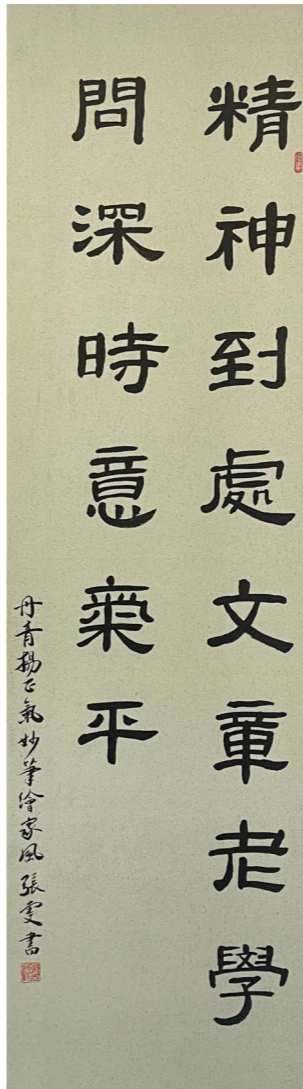 精神到處文章老學
問深時意氣平
丹青揚正氣妙筆繪家風 張雯書